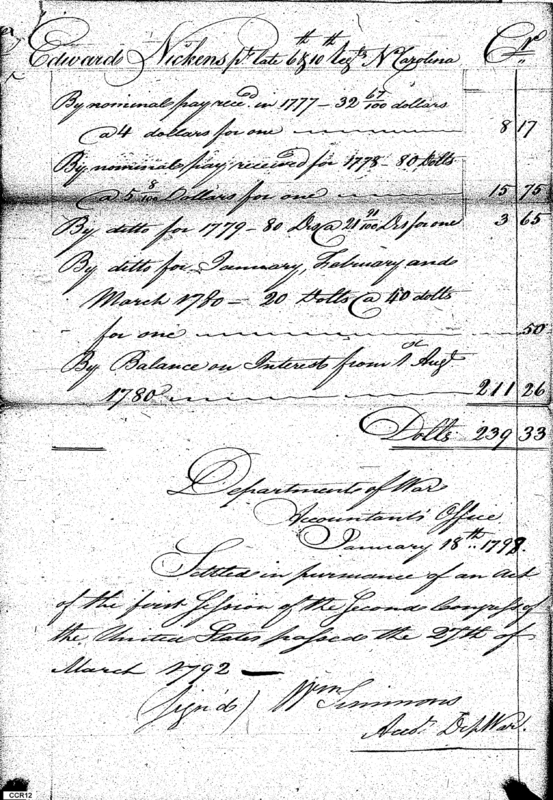 Edward Nickens pt. late 6 & 10th Regts. No Carolina Cr.
By nominal pay recd. in 1777 – 32 67/100 dollars
@ 4 dollars for one 8 17
By nominal pay received for 1778 – 80 Dolls
@ 5 8/100 Dollars for one 15 75
By ditto for 1779 – 80 Drs @ 21 91/100 Drs for one 3 65
By ditto for January, February and
March 1780 – 20 Dolls @ 40 dolls
for one 50
By Balance on Interest from 1st Augt.
1780 211 26
Dolls 239 33
Department of War
Accountant's Office
January 18th. 1798.
Settled in pursuance of an Act
of the first Session of the Second Congress of
the United States passed the 27th of
March 1792 —
(Sign'd) Wm Simmons
Acct. Dep War.
CCR12